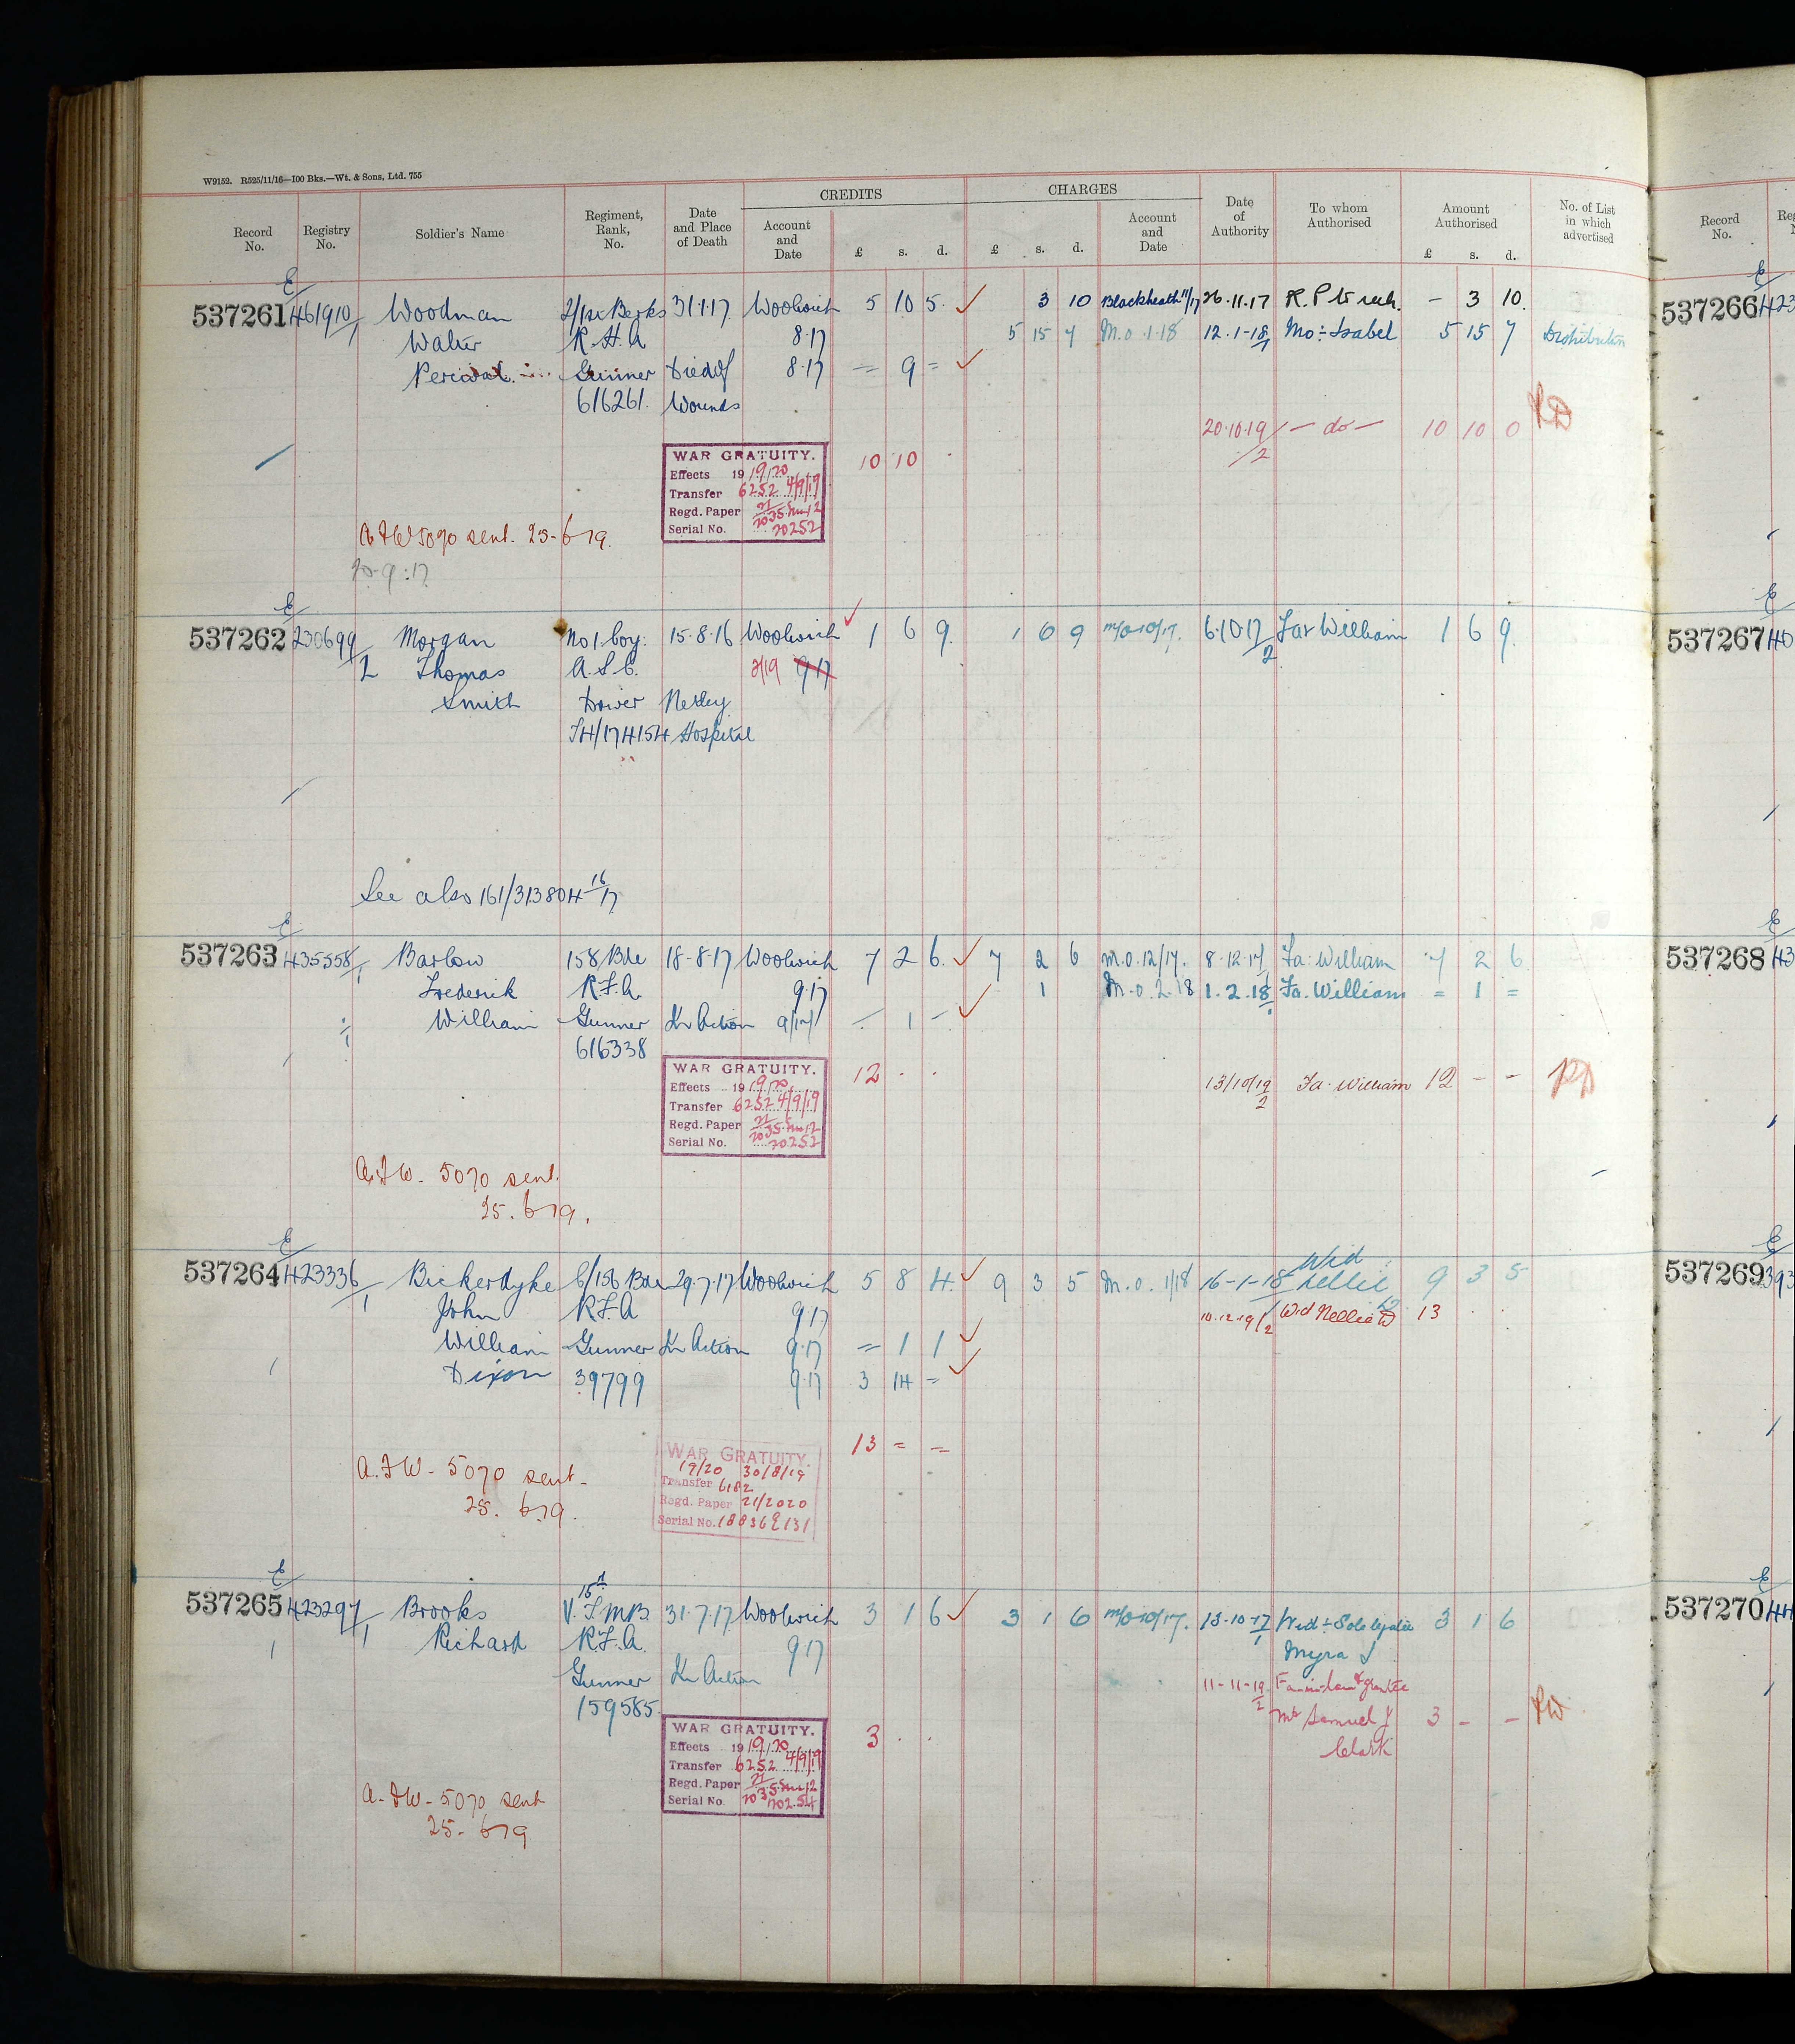 W9152. R525/11/16—100 Bks.—Wt. & Sons, Ltd. 755
CREDITS CHARGES
Record No. Registry No. Soldier's Name Regiment, Rank, No. Date and Place of Death Account and Date £ s. d. £ s. d. Account and Date Date of Authority To whom Authorised Amount Authorised £ s. d. No. of List in which advertised Record No.
E
537261 461910/1 Woodman 2/1st Berks 31.7.17 Woolwich 5 10 5 3 10 Blackheath 11/17 26.11.17 — 3 10 537266
Walter R.H.A 8.17 5 15 7 M.O. 1.18 12.1.18/1 Mo: Isabel 5 15 7 Distribution
Percival Gunner Died of 8.17 = 9 =
616261. Wounds
20.10.19/2 — do — 10 10 0
WAR GRATUITY. 10 10
Effects 1919/20
Transfer 6252 4/9/19
Regd. Paper
Serial No. 70252
A.F.W 5070 sent. 25-6-19.
20.9.17
E
537262 230699/1 Morgan No 1 Coy. 15.8.16 Woolwich 1 6 9 1 6 9 M/O 10/17. 6.10.17/2 Far William 1 6 9 537267
L Thomas A.S.C. 2/19 9.17
Smith Driver Netley
T4/174154 Hospital
See also 161/313804 16/17
E
537263 435558/1 Barlow 158 Bde 18-8-17 Woolwich 7 2 6 7 2 6 M.O. 12/17. 8.12.17/1 Fa: William 7 2 6 537268
Frederick R.F.A. 9.17 1 M.O. 2.18 1.2.18/1 Fa. William = 1 =
William Gunner K in Action 9/17 — 1 —
616338
WAR GRATUITY. 12 . . 13/10/19/2 Fa. William 12 — —
Effects 1919/20
Transfer 6252 4/9/19
Regd. Paper
Serial No. 70252
A.F.W. 5070 sent.
25.6.19.
E
537264 423336/1 Bickerdyke C/156 Bde 29.7.17 Woolwich 5 8 4 9 3 5 M.O. 1/18 16-1-18 Wid: Nellie 9 3 5 537269
John R.F.A 9.17 10.12.19/2 Wid Nellie 13
William Gunner K in Action 9.17 = 1 1
Dixon 39799 9.17 3 14 =
WAR GRATUITY. 13 = =
19/20 30/8/19
Transfer 6182
Regd. Paper 21/2020
Serial No.
A.F.W. 5070 sent.
25.6.19.
E
537265 423297/1 Brooks 31.7.17 Woolwich 3 1 6 3 1 6 M/O 10/17. 13.10.17/1 Wid: Sole legatee 3 1 6 537270
Richard R.F.A. 9.17 Myra J
Gunner K in Action 11-11-19/2
159585. Mr Samuel J 3 — —
Clark
WAR GRATUITY. 3 . .
Effects 1919/20
Transfer 6252 4/9/19
Regd. Paper
Serial No. 70254
A.F.W. 5070 sent
25.6.19